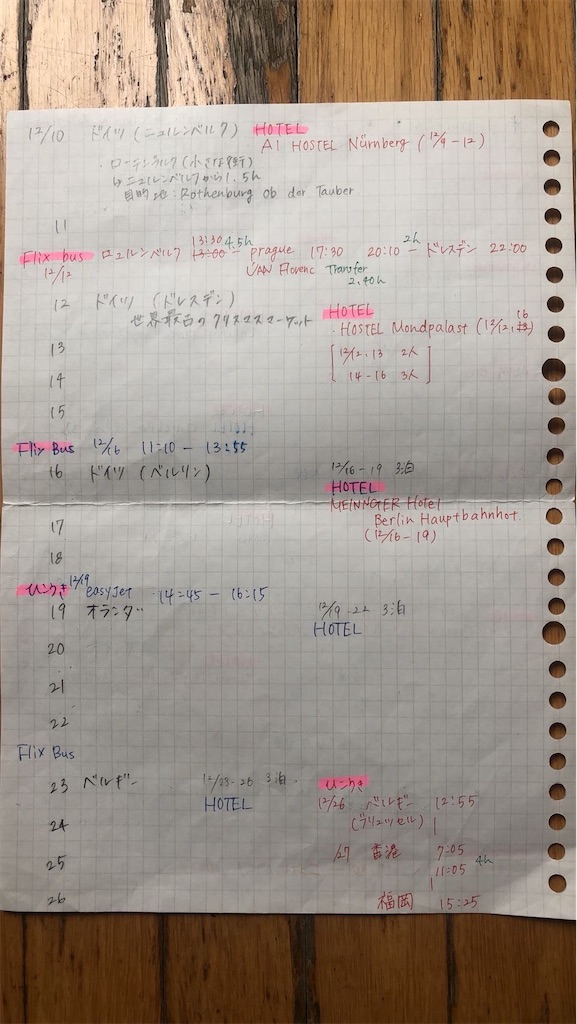 12/10 ドイツ (ニュルンベルク) HOTEL
A1 HOSTEL Nürnberg (12/9-12)
・ローテンブルク (小さな街)
↳ニュルンベルクから1.5h
目的地: Rothenburg ob der Tauber
11
Flix bus ニュルンベルク 13:30 13:00 4.5h - prague 17:30 20:10 - 2h ドレスデン 22:00
12/12 ÚAN Florenc Transfer
2,40h
12 ドイツ (ドレスデン) HOTEL
世界最古のクリスマスマーケット
・HOSTEL Mondpalast (12/12, 16
13 [12/12, 13 2人
14 14-16 3人]
15
Flix Bus 12/16 11:10 - 13:55
16 ドイツ (ベルリン) 12/16-19 3泊
HOTEL
MEINNGER Hotel
17 Berlin Hauptbahnhof.
18 (12/16-19)
ひこうき 12/19 easyJet 14:45 - 16:15
19 オランダ 12/19-22 3泊
HOTEL
20
21
22
Flix Bus
23 ベルギー 12/23-26 3泊 ひこうき
HOTEL 12/26 ベルギー 12:55
24 (ブリュッセル) |
25 /27 香港 7:05
11:05 4h
|
26 福岡 15:25